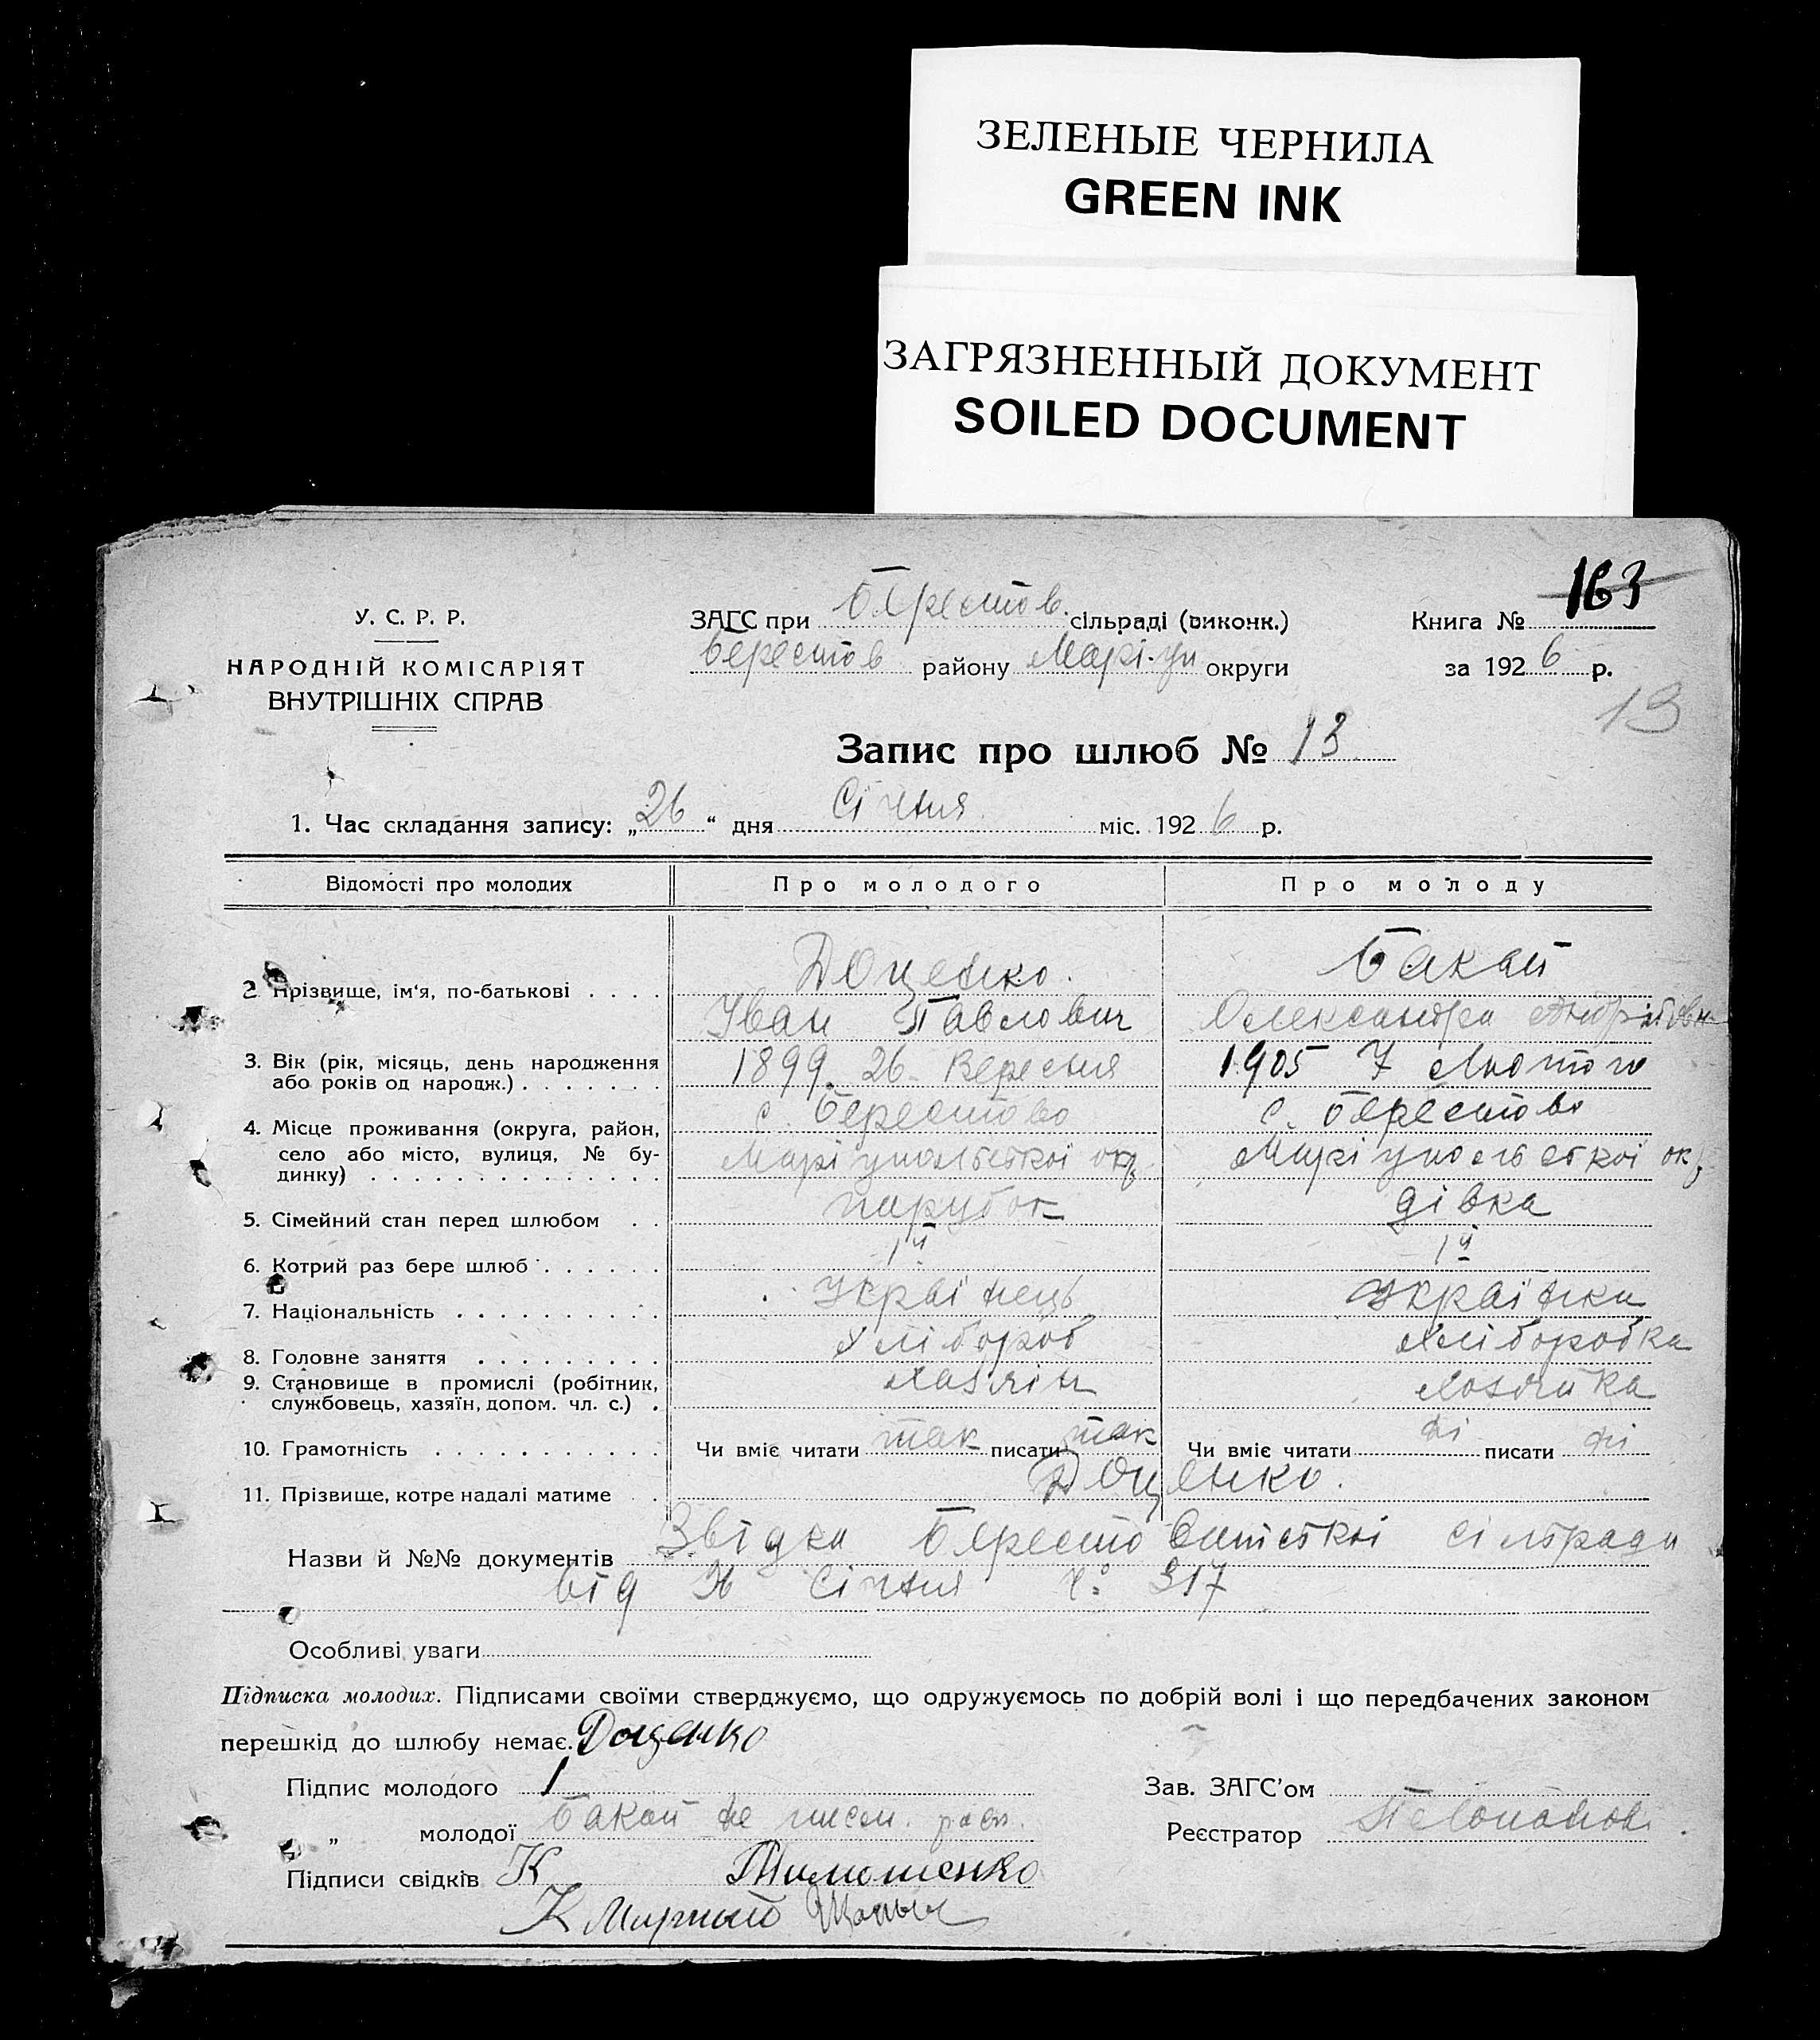 ЗЕЛЕНЫЕ ЧЕРНИЛА
GREEN INK
ЗАГРЯЗНЕННЫЙ ДОКУМЕНТ
SOILED DOCUMENT
163
У. С. Р. Р.
НАРОДНІЙ КОМІСАРІЯТ
ВНУТРІШНІХ СПРАВ
ЗАГС при Берестов. сільраді (виконк.)
Берестов району Марі-уп округи
Книга №
за 1926 р.
13
Запис про шлюб № 13
1. Час складання запису: „26“ дня Січня міс. 1926 р.
Відомості про молодих Про молодого Про молоду
2. Прізвище, ім'я, по-батькові . . . . Доценко. Бакай
Іван Павлович Олександра
3. Вік (рік, місяць, день народження або років од народж.) . . . . . . . 1899. 26. Вересня 1905 7 Лютого
4. Місце проживання (округа, район, село або місто, вулиця, № будинку) . . . . . . . . . . . . . . с. Берестово с. Берестово
Маріупольської окр. Маріупольської окр
5. Сімейний стан перед шлюбом . . парубок дівка
6. Котрий раз бере шлюб . . . . . . 1й 1й
7. Національність . . . . . . . . . . Українець Українка
8. Головне заняття . . . . . . . . . Хлібороб Хліборобка
9. Становище в промислі (робітник, службовець, хазяїн, допом. чл. с.) . Хазяін Хозяйка
10. Грамотність . . . . . . . . . . . Чи вміє читати так писати так Чи вміє читати ні писати ні
11. Прізвище, котре надалі матиме . . Доценко.
Назви й №№ документів Звідка Сільради
від 26 Січня № 317
Особливі уваги
Підписка молодих. Підписами своїми стверджуємо, що одружуємось по добрій волі і що передбачених законом
перешкід до шлюбу немає. Доценко
Підпис молодого Зав. ЗАГС'ом
„ молодої Бакай не писм. Реєстратор
Підписи свідків К Тимошенко
К Мирный